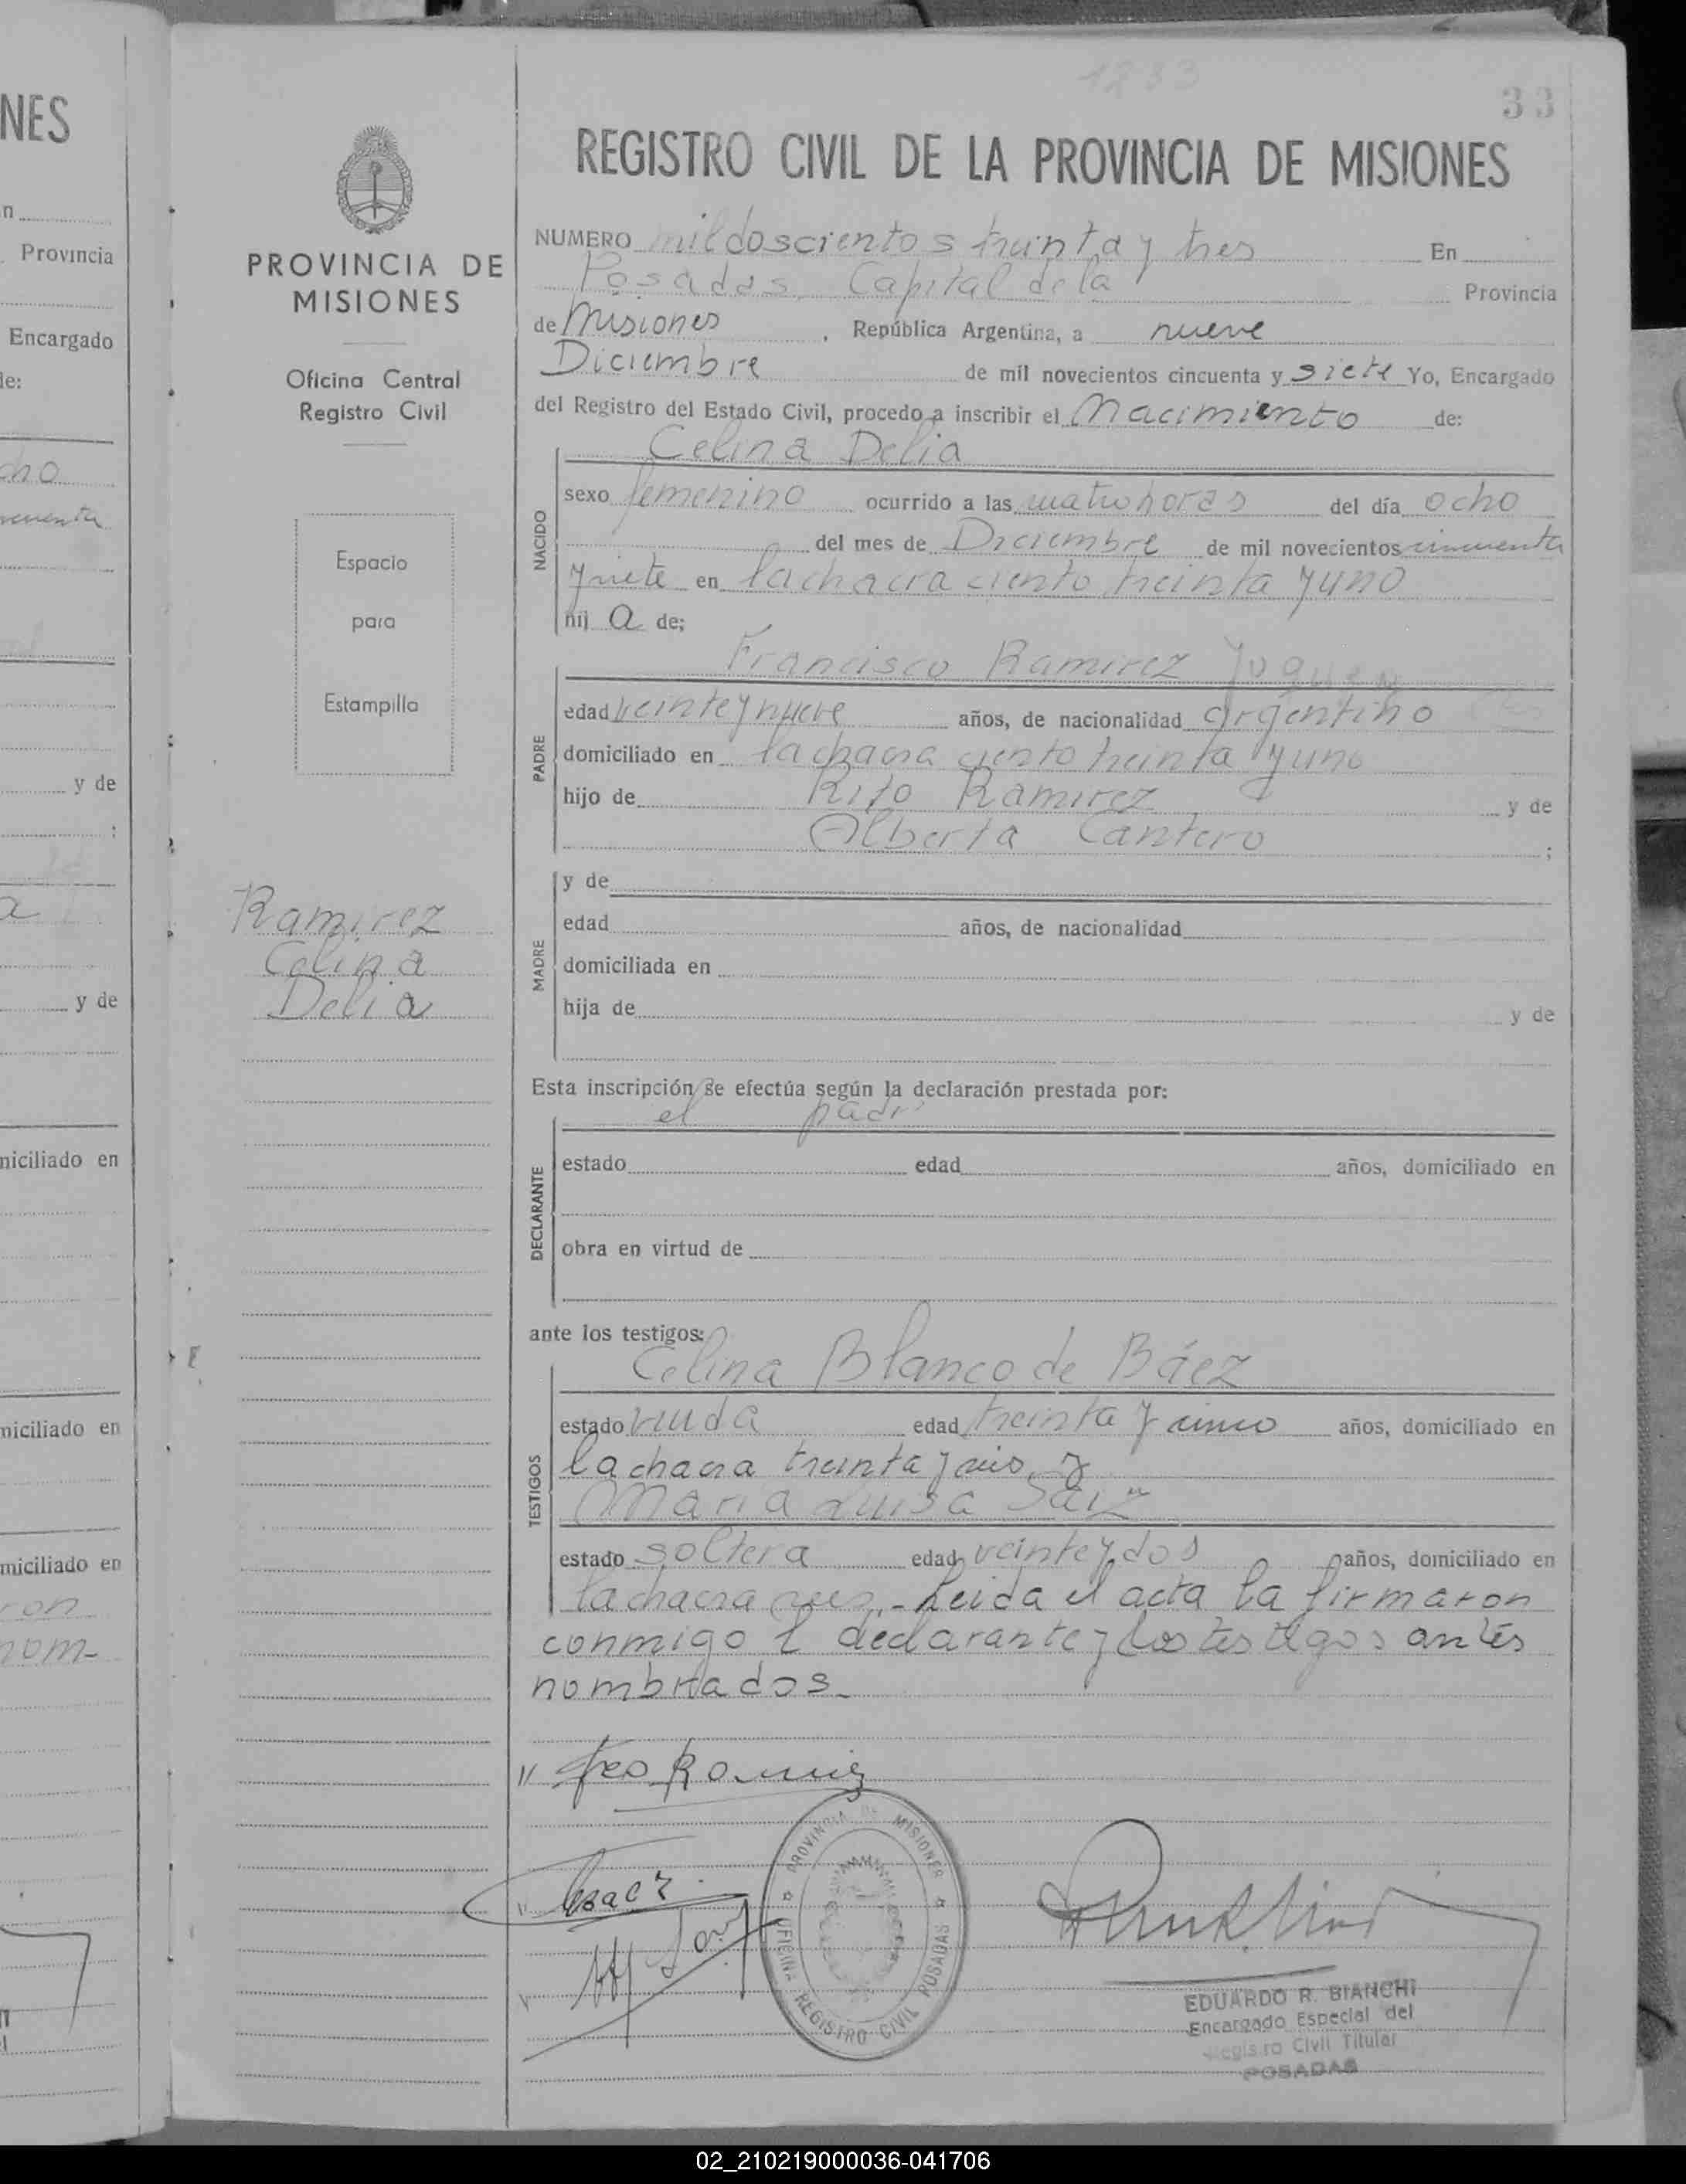 1233
33
REGISTRO CIVIL DE LA PROVINCIA DE MISIONES
PROVINCIA DE
MISIONES
Oficina Central
Registro Civil
Espacio
para
Estampilla
Ramirez
Celina
Delia
NUMERO mil doscientos treinta y tres En
Posadas, Capital de la Provincia
de Misiones, República Argentina, a nueve
Diciembre de mil novecientos cincuenta y siete Yo, Encargado
del Registro del Estado Civil, procedo a inscribir el Nacimiento de:
NACIDO
Celina Delia
sexo femenino ocurrido a las cuatro horas del día ocho
del mes de Diciembre de mil novecientos cincuenta
y siete en la chacra ciento treinta y uno
hij a de:
PADRE
Francisco Ramirez
edad veinte y nueve años, de nacionalidad argentino
domiciliado en la chacra ciento treinta y uno
hijo de Rito Ramirez y de
Alberta Cantero ;
MADRE
y de
edad años, de nacionalidad
domiciliada en
hija de y de
Esta inscripción se efectúa según la declaración prestada por:
DECLARANTE
el padre
estado edad años, domiciliado en
obra en virtud de
ante los testigos:
TESTIGOS
Celina Blanco de Báez
estado viuda edad treinta y cinco años, domiciliado en
la chacra treinta y seis, y
Maria Luisa
estado soltera edad veinte y dos años, domiciliado en
la chacra Leida el acta la firmaron
conmigo el declarante y los testigos antes
nombrados.
Fco Ramirez
PROVINCIA DE MISIONES
OFICINA REGISTRO CIVIL POSADAS
EDUARDO R. BIANCHI
Encargado Especial del
Registro Civil Titular
POSADAS
NES
n
Provincia
Encargado
de:
cho
cuenta
y de
;
a
y de
miciliado en
miciliado en
miciliado en
ron
nom-
02_210219000036-041706